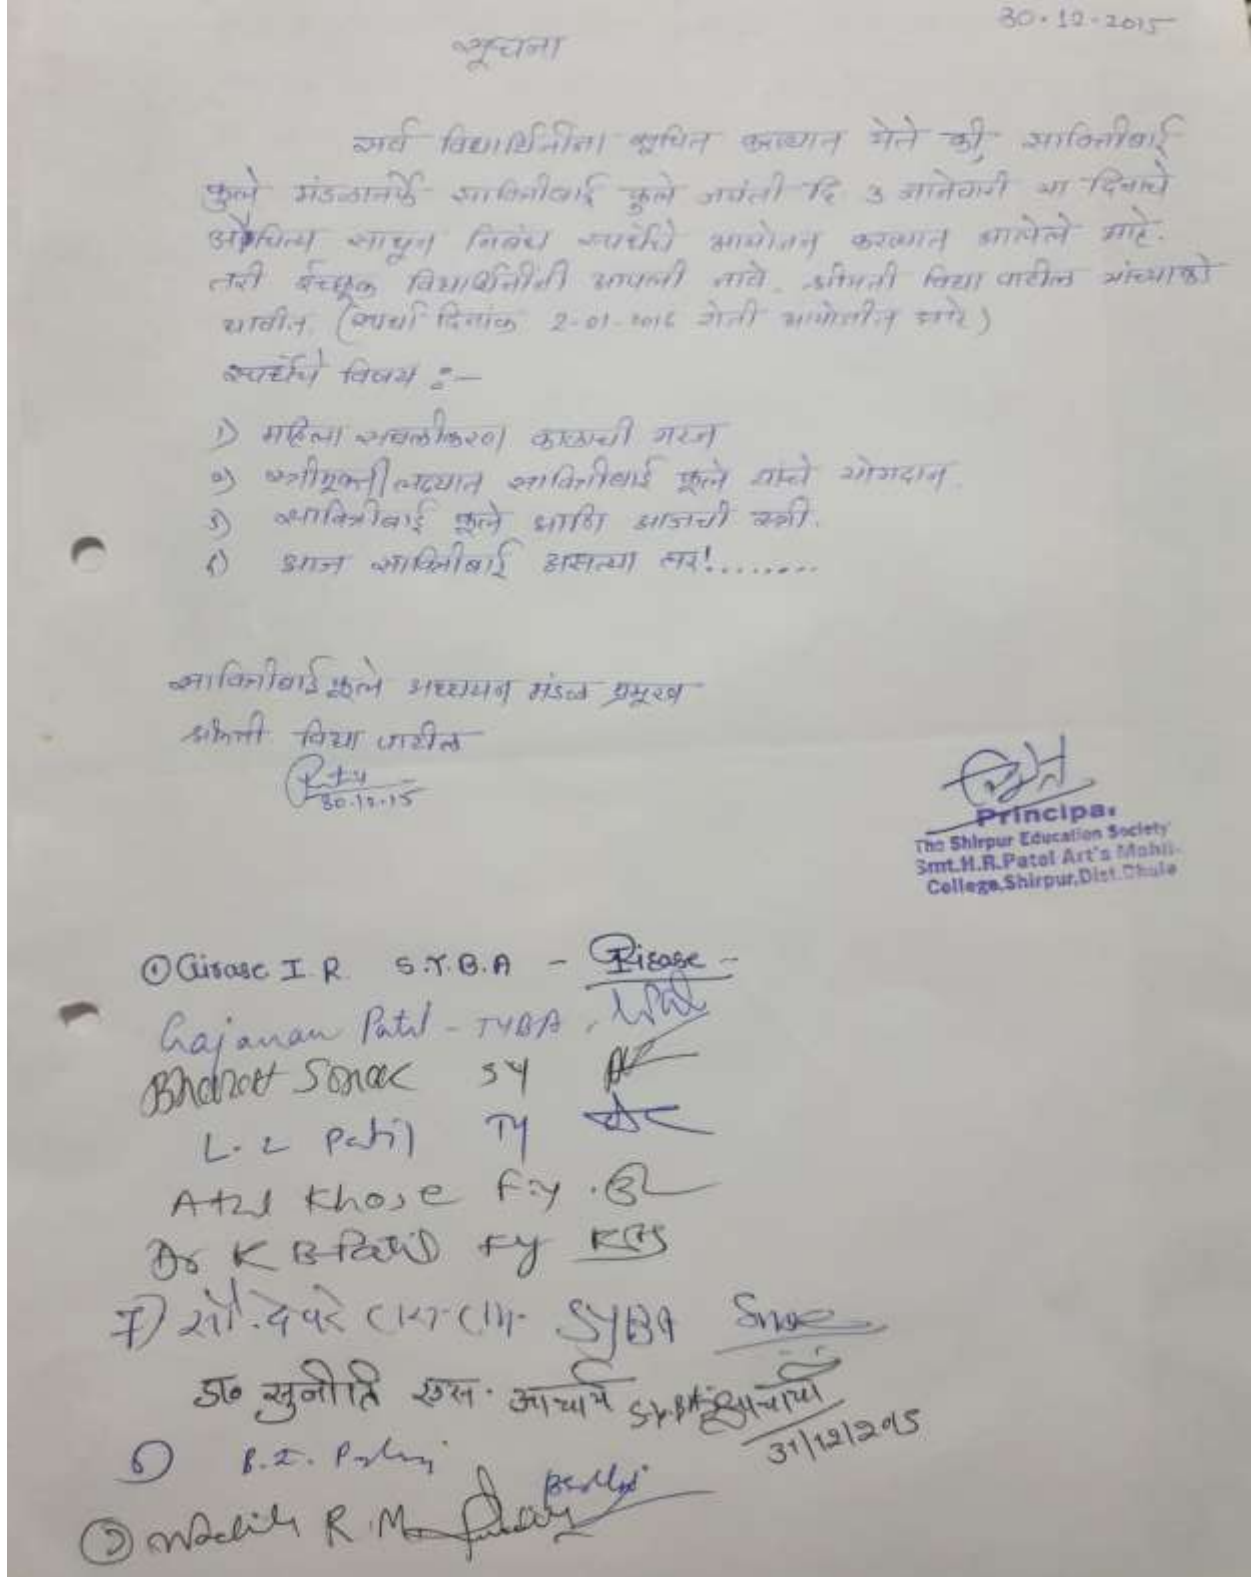 30-12-2015
सूचना
सर्व विद्यार्थिनींना सूचित करण्यात येते की, सावित्रीबाई
फुले मंडळातर्फे सावित्रीबाई फुले जयंती दि 3 जानेवारी या दिनाचे
औचित्य साधून निबंध स्पर्धेचे आयोजन करण्यात आलेले आहे.
तरी ईच्छूक विद्यार्थिनींनी आपली नावे श्रीमती विद्या पाटील यांच्याकडे
द्यावीत. (स्पर्धा दिनांक 2-01-2016 रोजी आयोजीत आहे)
स्पर्धेचे विषय :-
1) महिला सबलीकरण काळाची गरज
2) स्त्रीमूक्ती लढ्यात सावित्रीबाई फूले यांचे योगदान.
3) सावित्रीबाई फूले आणि आजची स्त्री.
4) आज सावित्रीबाई असत्या तर!........
सावित्रीबाई फूले अध्ययन मंडळ प्रमूख
श्रीमती विद्या पाटील
30.12.15
Principa.
The Shirpur Education Society
Smt.H.R.Patel Art's Mahil.
College,Shirpur,Dist.Dhule
① Girase I. R. S.Y.B.A - Girase -
Gajanan Patil - TYBA,
Bharat Sonar SY
L. Z Patil TY
Atul Khose F.y.
Dr K B Patil Fy KBS
7) सौ. देवरे SYBA
डॉ० सुनीति एस. आचार्य S.Y.BA आचार्या
31/12/2015
R. M.